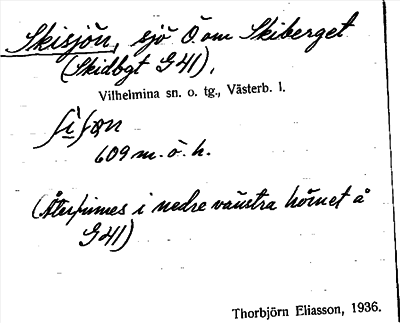 Skisjön, sjö Ö. om Skiberget
(Skidbgt G 41).
Vilhelmina sn. o. tg., Västerb. l.
609 m. ö. h.
(Återfinnes i nedre vänstra hörnet å
G 41)
Thorbjörn Eliasson, 1936.